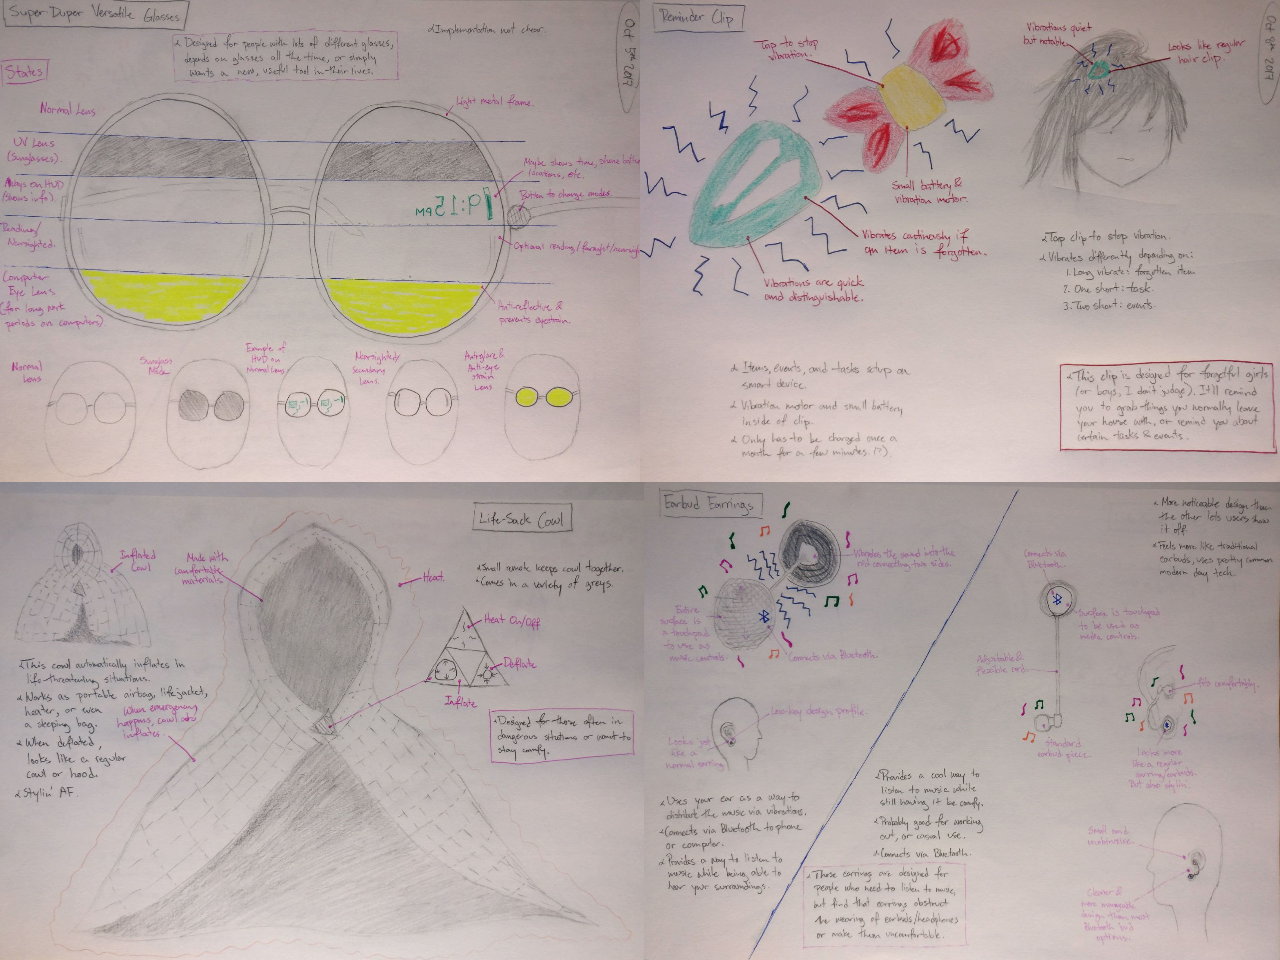 Super Duper Versatile Glasses
Oct 5th 2017
∝ Implementation not clear.
∝ Designed for people with lots of different glasses,
depends on glasses all the time, or simply
wants a new, useful tool in their lives.
States
Normal Lens
UV Lens
(Sunglasses)
Always on HUD
(shows info)
Reading/
Nearsighted.
Computer
Eye Lens
(for long work
periods on computers)
Light metal frame.
Maybe shows time,
locations, etc.
Button to change modes.
9:15 PM
Optional reading/farsight/nearsight
Anti-reflective &
prevents eyestrain.
Normal
Lens
Sunglass
Mode
Example of
HUD on
Normal Lens
Nearsighted/
Secondary
Lens.
Anti-glare &
Anti-eye
strain
Lens
Reminder Clip
Oct 8th 2017
Tap to stop
vibration.
Vibrations quiet
but notable.
Looks like regular
hair clip.
Small battery &
vibration motor.
Vibrates continously if
an item is forgotten.
Vibrations are quick
and distinguishable.
∝ Tap clip to stop vibration.
∝ Vibrates differently depending on:
1. Long vibrate: forgotten item
2. One short: task.
3. Two short: events.
∝ Items, events, and tasks setup on
smart device.
∝ Vibration motor and small battery
inside of clip.
∝ Only has to be charged once a
month for a few minutes. (?)
∝ This clip is designed for forgetful girls
(or boys, I don't judge). It'll remind
you to grab things you normally leave
your house with, or remind you about
certain tasks & events.
Life-Sack Cowl
Inflated
Cowl
Made with
comfortable
materials.
Heat.
∝ Small remote keeps cowl together.
∝ Comes in a variety of greys.
Heat On/Off
Deflate
Inflate
∝ This cowl automatically inflates in
life-threatening situations.
∝ Works as portable airbag, lifejacket,
heater, or even
a sleeping bag.
∝ When deflated,
looks like a regular
cowl or hood.
∝ Stylin' AF.
When emergency
happens, cowl also
inflates.
∝ Designed for those often in
dangerous situations or want to
stay comfy.
Earbud Earrings
Vibrates the sound into the
ear connecting two sides.
Entire
surface is
a touchpad
to use as
music controls.
Connects via Bluetooth.
Low-key design profile.
Looks just
like a
normal earring
∝ Uses your ear as a way to
distribute the music via vibrations.
∝ Connects via Bluetooth to phone
or computer.
∝ Provides a way to listen to
music while being able to
hear your surroundings.
∝ More noticeable design than
the other lets users show
it off
∝ Feels more like traditional
earbuds, uses pretty common
modern day tech.
Connects via
Bluetooth.
Surface is touchpad
to be used as
music controls.
Adjustable &
flexible cord.
Standard
earbud piece.
Fits comfortably.
Looks more
like a regular
earring/earbuds.
But also stylin'.
∝ Provides a cool way to
listen to music while
still having it be comfy.
∝ Probably good for working
out, or casual use.
∝ Connects via Bluetooth.
∝ These earrings are designed for
people who need to listen to music,
but find that earrings obstruct
the wearing of earbuds/headphones
or make them uncomfortable.
Small and
unobtrusive.
Cleaner &
more manageable
design than most
Bluetooth bud
options.